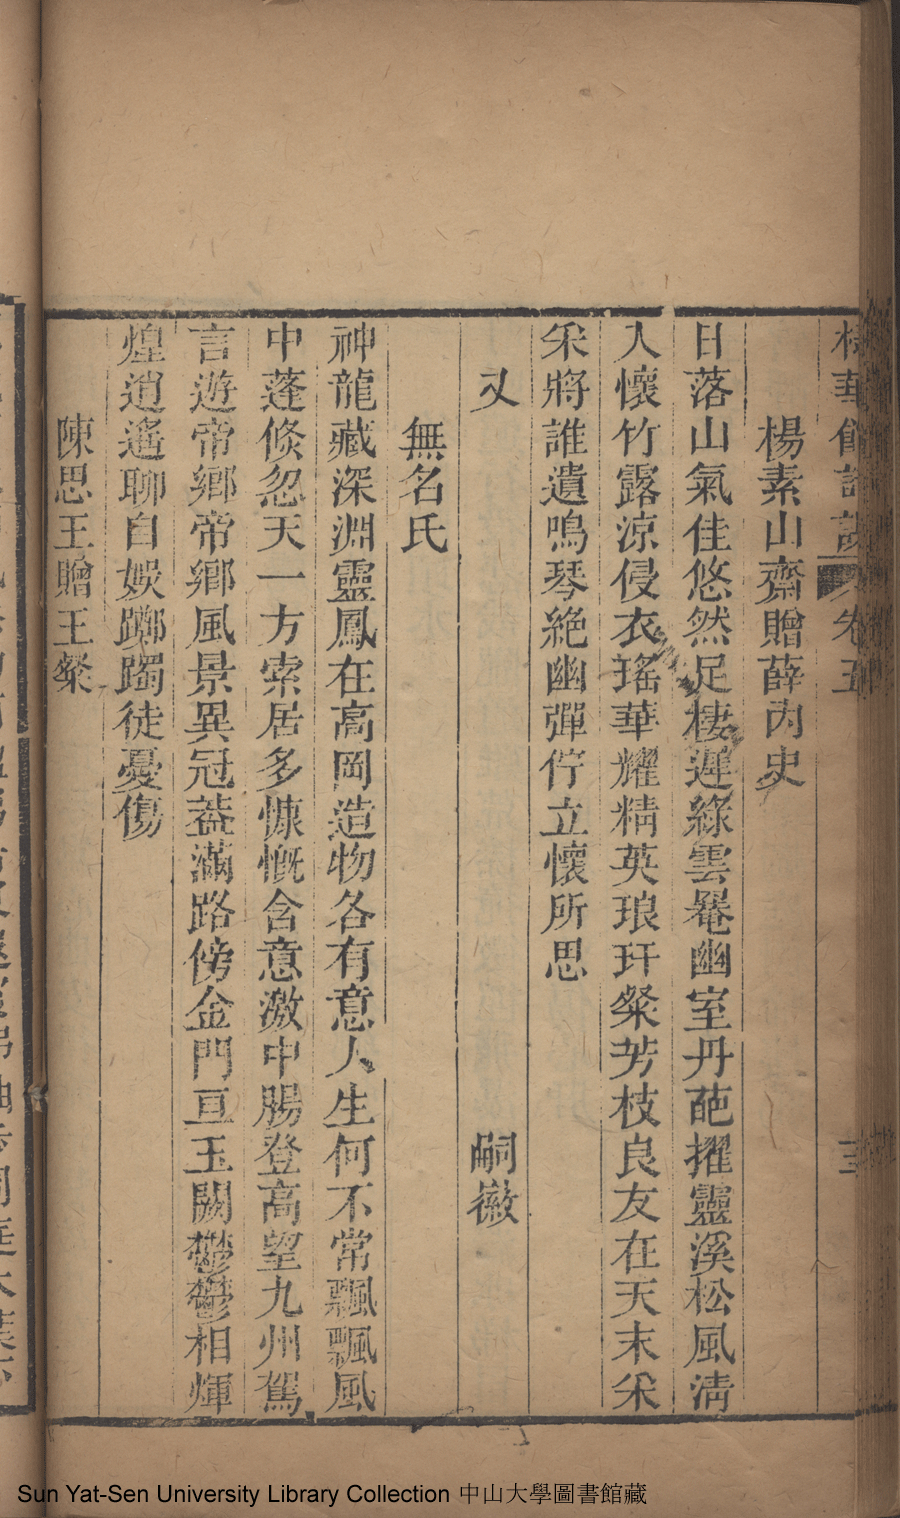 華館詩說 卷五 三
楊素山齋贈薛內史
日落山氣佳悠然足棲遲綠雲罨幽室丹葩擢靈溪松風清
人懷竹露涼侵衣瑤華耀精英琅玕粲芳枝良友在天末采
采將誰遺鳴琴絕幽彈佇立懷所思
又 嗣徽
無名氏
神龍藏深淵靈鳳在高岡造物各有意人生何不常飄飄風
中蓬倏忽天一方索居多慷慨含意激中腸登高望九州駕
言遊帝鄉帝鄉風景異冠葢滿路傍金門亘玉闕鬱鬱相煇
煌逍遙聊自娛躑躅徒憂傷
陳思王贈王粲
Sun Yat-Sen University Library Collection 中山大學圖書館藏